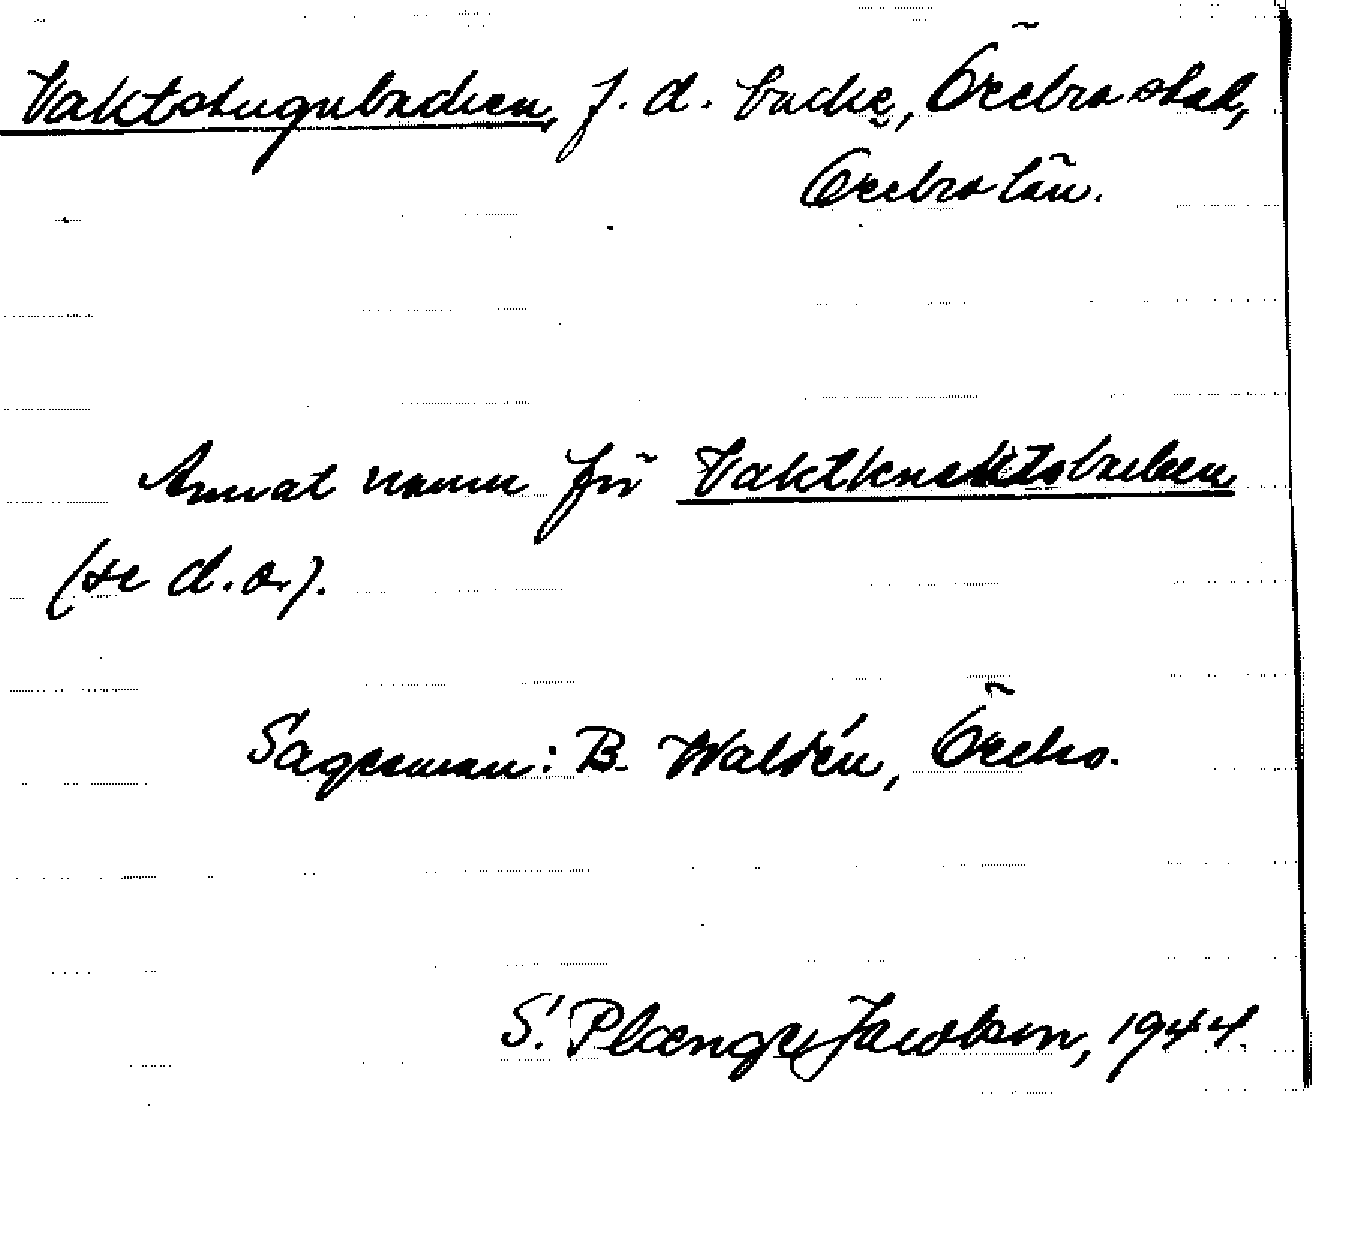 Vaktstugubacken, f. d. backe, Örebro stad,
Örebro län.
Annat namn för Vaktknektsbacken
(se d. o.).
Sagesman: B. Waldén, Örebro.
S. Plænge Jacobson, 1944.